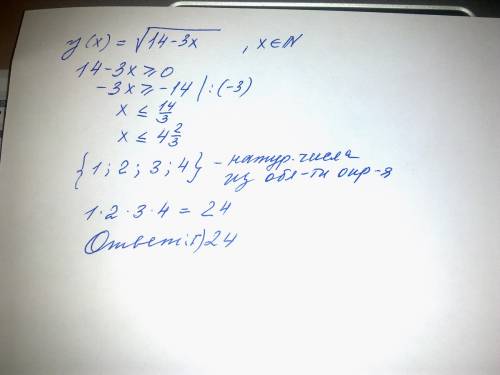 y(x) = √14-3x , x∈N
14-3x ≥ 0
-3x ≥ -14 | : (-3)
x ≤ 14/3
x ≤ 4 2/3
{1; 2; 3; 4} - натур. числа
из обл-ти опр-я
1·2·3·4 = 24
Ответ: Б) 24